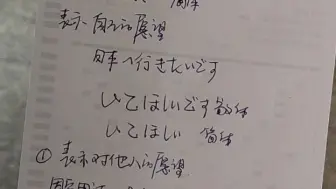 简体
表示自己的愿望
日本へ行きたいです
いてほしいです 敬体
いてほしい 简体
① 表示对他人的愿望